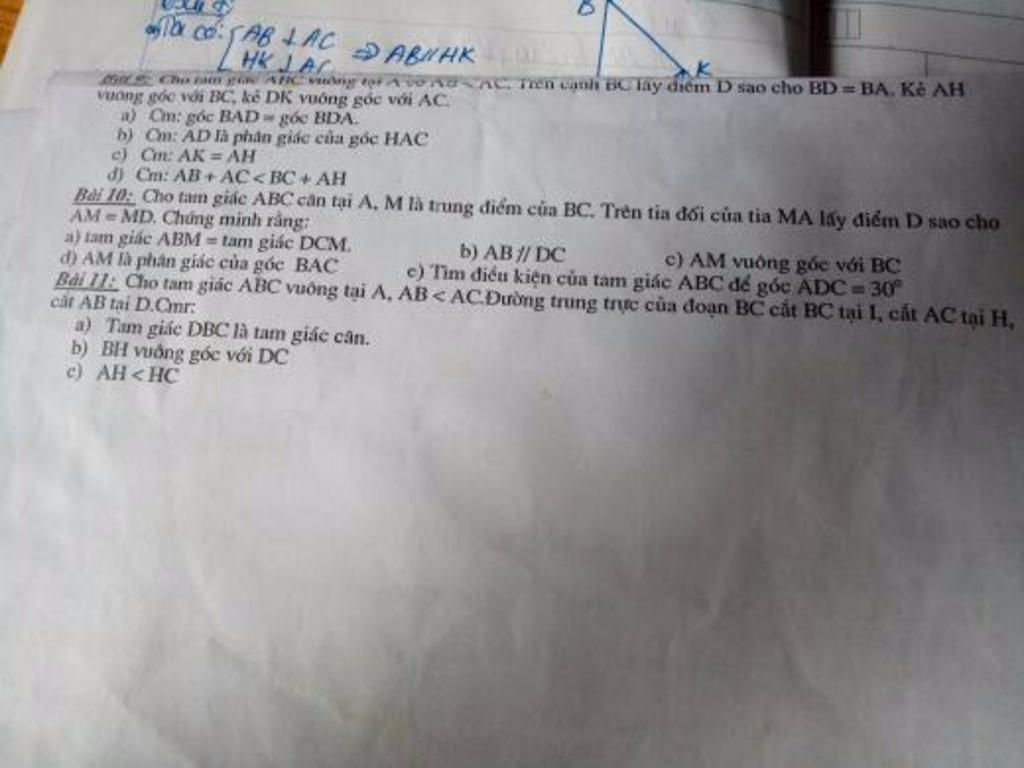 Ta có: { AB ⊥ AC
HK ⊥ AC ⇒ AB // HK
B
K
Bài 9: Cho tam giác ABC vuông tại A có AB < AC. Trên cạnh BC lấy điểm D sao cho BD = BA. Kẻ AH
vuông góc với BC, kẻ DK vuông góc với AC.
a) Cm: góc BAD = góc BDA.
b) Cm: AD là phân giác của góc HAC
c) Cm: AK = AH
d) Cm: AB + AC < BC + AH
Bài 10: Cho tam giác ABC cân tại A, M là trung điểm của BC. Trên tia đối của tia MA lấy điểm D sao cho
AM = MD. Chứng minh rằng:
a) tam giác ABM = tam giác DCM. b) AB // DC c) AM vuông góc với BC
d) AM là phân giác của góc BAC e) Tìm điều kiện của tam giác ABC để góc ADC = 30⁰
Bài 11: Cho tam giác ABC vuông tại A, AB < AC.Đường trung trực của đoạn BC cắt BC tại I, cắt AC tại H,
cắt AB tại D.Cmr:
a) Tam giác DBC là tam giác cân.
b) BH vuông góc với DC
c) AH < HC